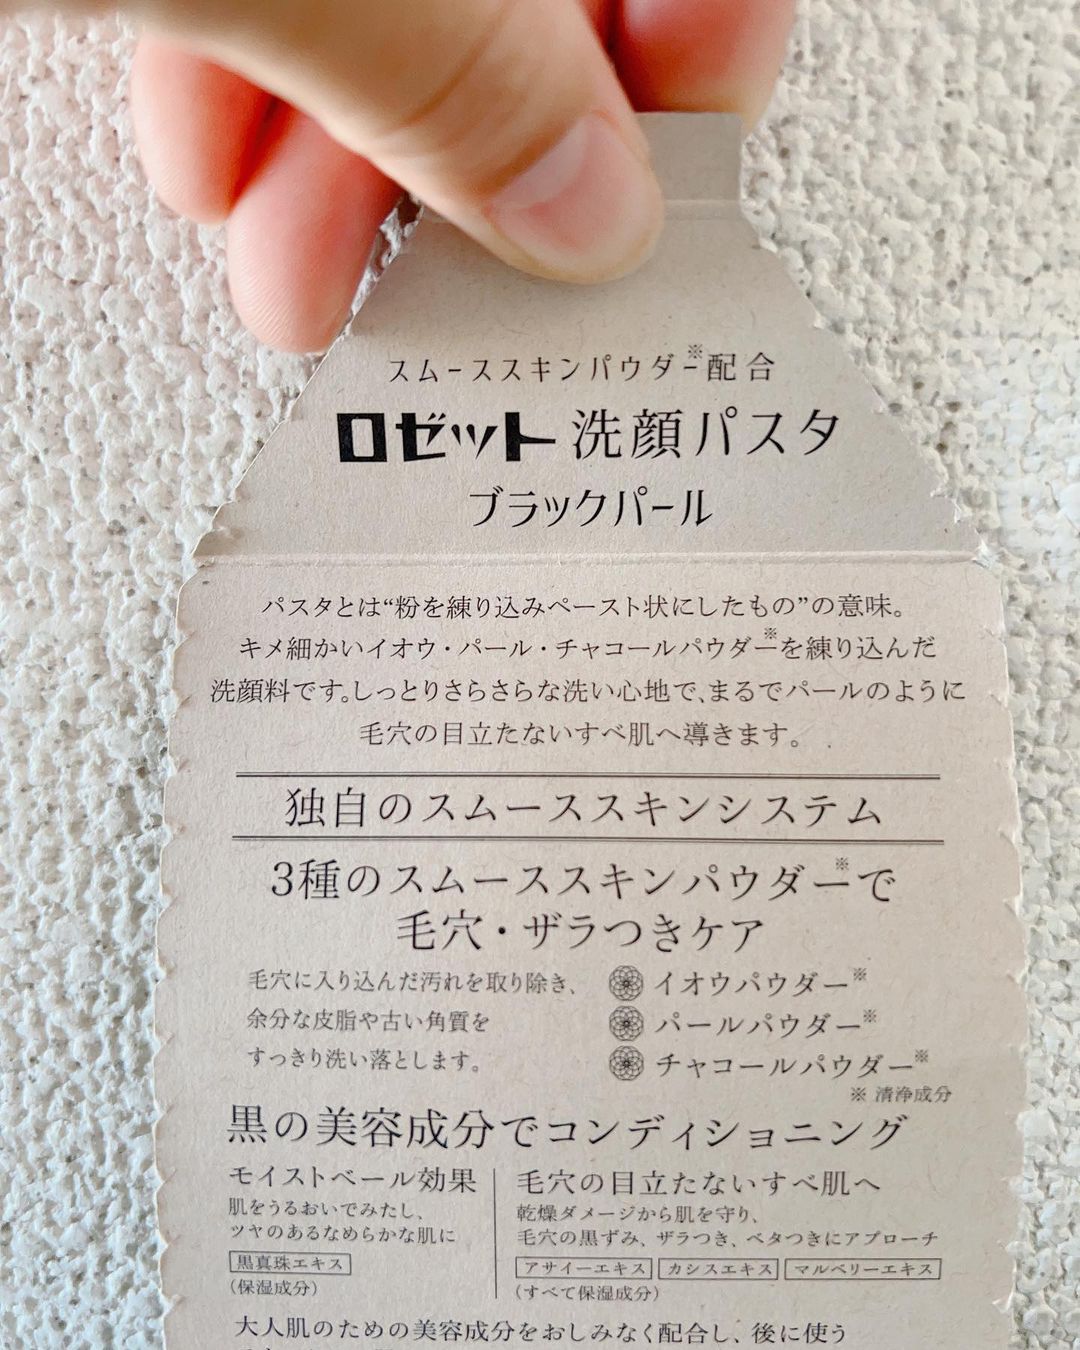 スムーススキンパウダー※配合
ロゼット 洗顔パスタ
ブラックパール
パスタとは“粉を練り込みペースト状にしたもの”の意味。
キメ細かいイオウ・パール・チャコールパウダー※を練り込んだ
洗顔料です。しっとりさらさらな洗い心地で、まるでパールのように
毛穴の目立たないすべ肌へ導きます。
独自のスムーススキンシステム
3種のスムーススキンパウダー※で
毛穴・ザラつきケア
毛穴に入り込んだ汚れを取り除き、
余分な皮脂や古い角質を
すっきり洗い落とします。
イオウパウダー※
パールパウダー※
チャコールパウダー※
※ 清浄成分
黒の美容成分でコンディショニング
モイストベール効果
肌をうるおいでみたし、
ツヤのあるなめらかな肌に
黒真珠エキス
(保湿成分)
毛穴の目立たないすべ肌へ
乾燥ダメージから肌を守り、
毛穴の黒ずみ、ザラつき、ベタつきにアプローチ
アサイーエキス カシスエキス マルベリーエキス
(すべて保湿成分)
大人肌のための美容成分をおしみなく配合し、後に使う